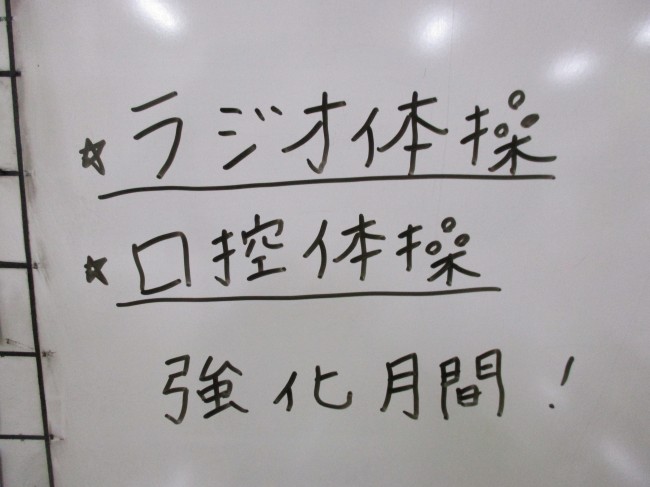 ☆ラジオ体操
☆口控体操
強化月間!